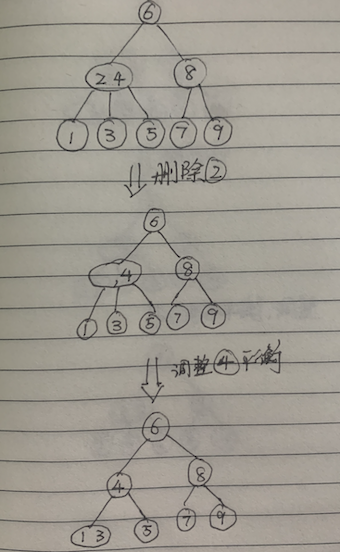 6
2 4 8
1 3 5 7 9
删除②
6
,4 8
1 3 5 7 9
调整④平衡
6
4 8
1 3 5 7 9